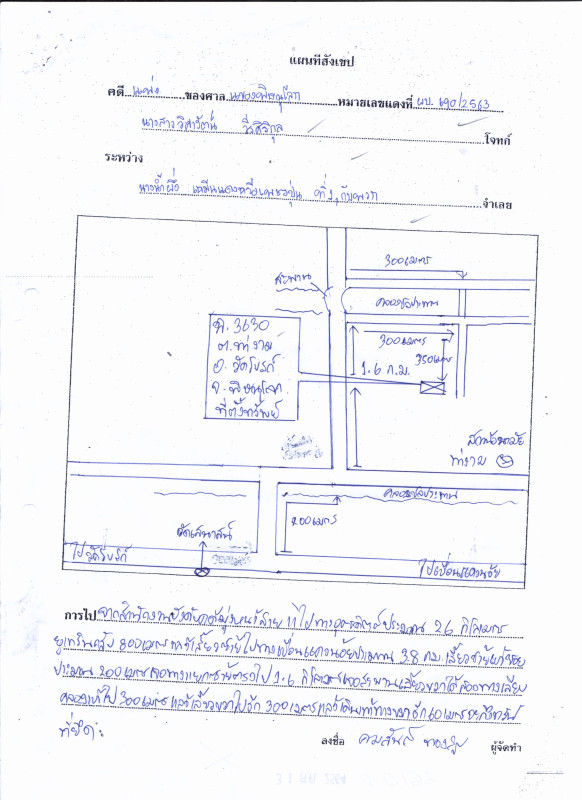 แผนที่สังเขป
คดี แพ่ง ของศาล แขวงพิษณุโลก หมายเลขแดงที่ ผบ. 690/2563
นางสาววิศาวัตน์ วีรศิริกุล โจทก์
ระหว่าง
นางน้ำผึ้ง ที่ 1, กับพวก จำเลย
300 เมตร
สะพาน
คลองชลประทาน
ฉ. 3630
ต. ท่างาม
อ. วัดโบสถ์
จ. พิษณุโลก
ที่ตั้งทรัพย์
300 เมตร
350 เมตร
1.6 ก.ม.
สถานีอนามัย
ท่างาม
คลองชลประทาน
200 เมตร
วัดเสนาสน์
ไปวัดโบสถ์
ไปเขื่อนแควน้อย
การไป จากสำนักงานบังคับคดีมุ่งหน้าสาย 11 ไปทางอุตรดิตถ์ประมาณ 26 กิโลเมตร
ยูเทิร์นกลับ 800 เมตร แล้วเลี้ยวซ้ายไปทางเขื่อนแควน้อยประมาณ 38 กม. เลี้ยวซ้าย
ประมาณ 200 เมตร เจอทางแยก ตรงไป 1.6 กิโลเมตร เจอสะพานเลี้ยวขวาใช้ถนนทางเลียบ
คลองเข้าไป 300 เมตร แล้วเลี้ยวขวาไปอีก 300 เมตร แล้ว ทางขวาอีก 60 เมตร จะถึงทรัพย์
ที่ยึด
ลงชื่อ คมสันต์ ผู้จัดทำ